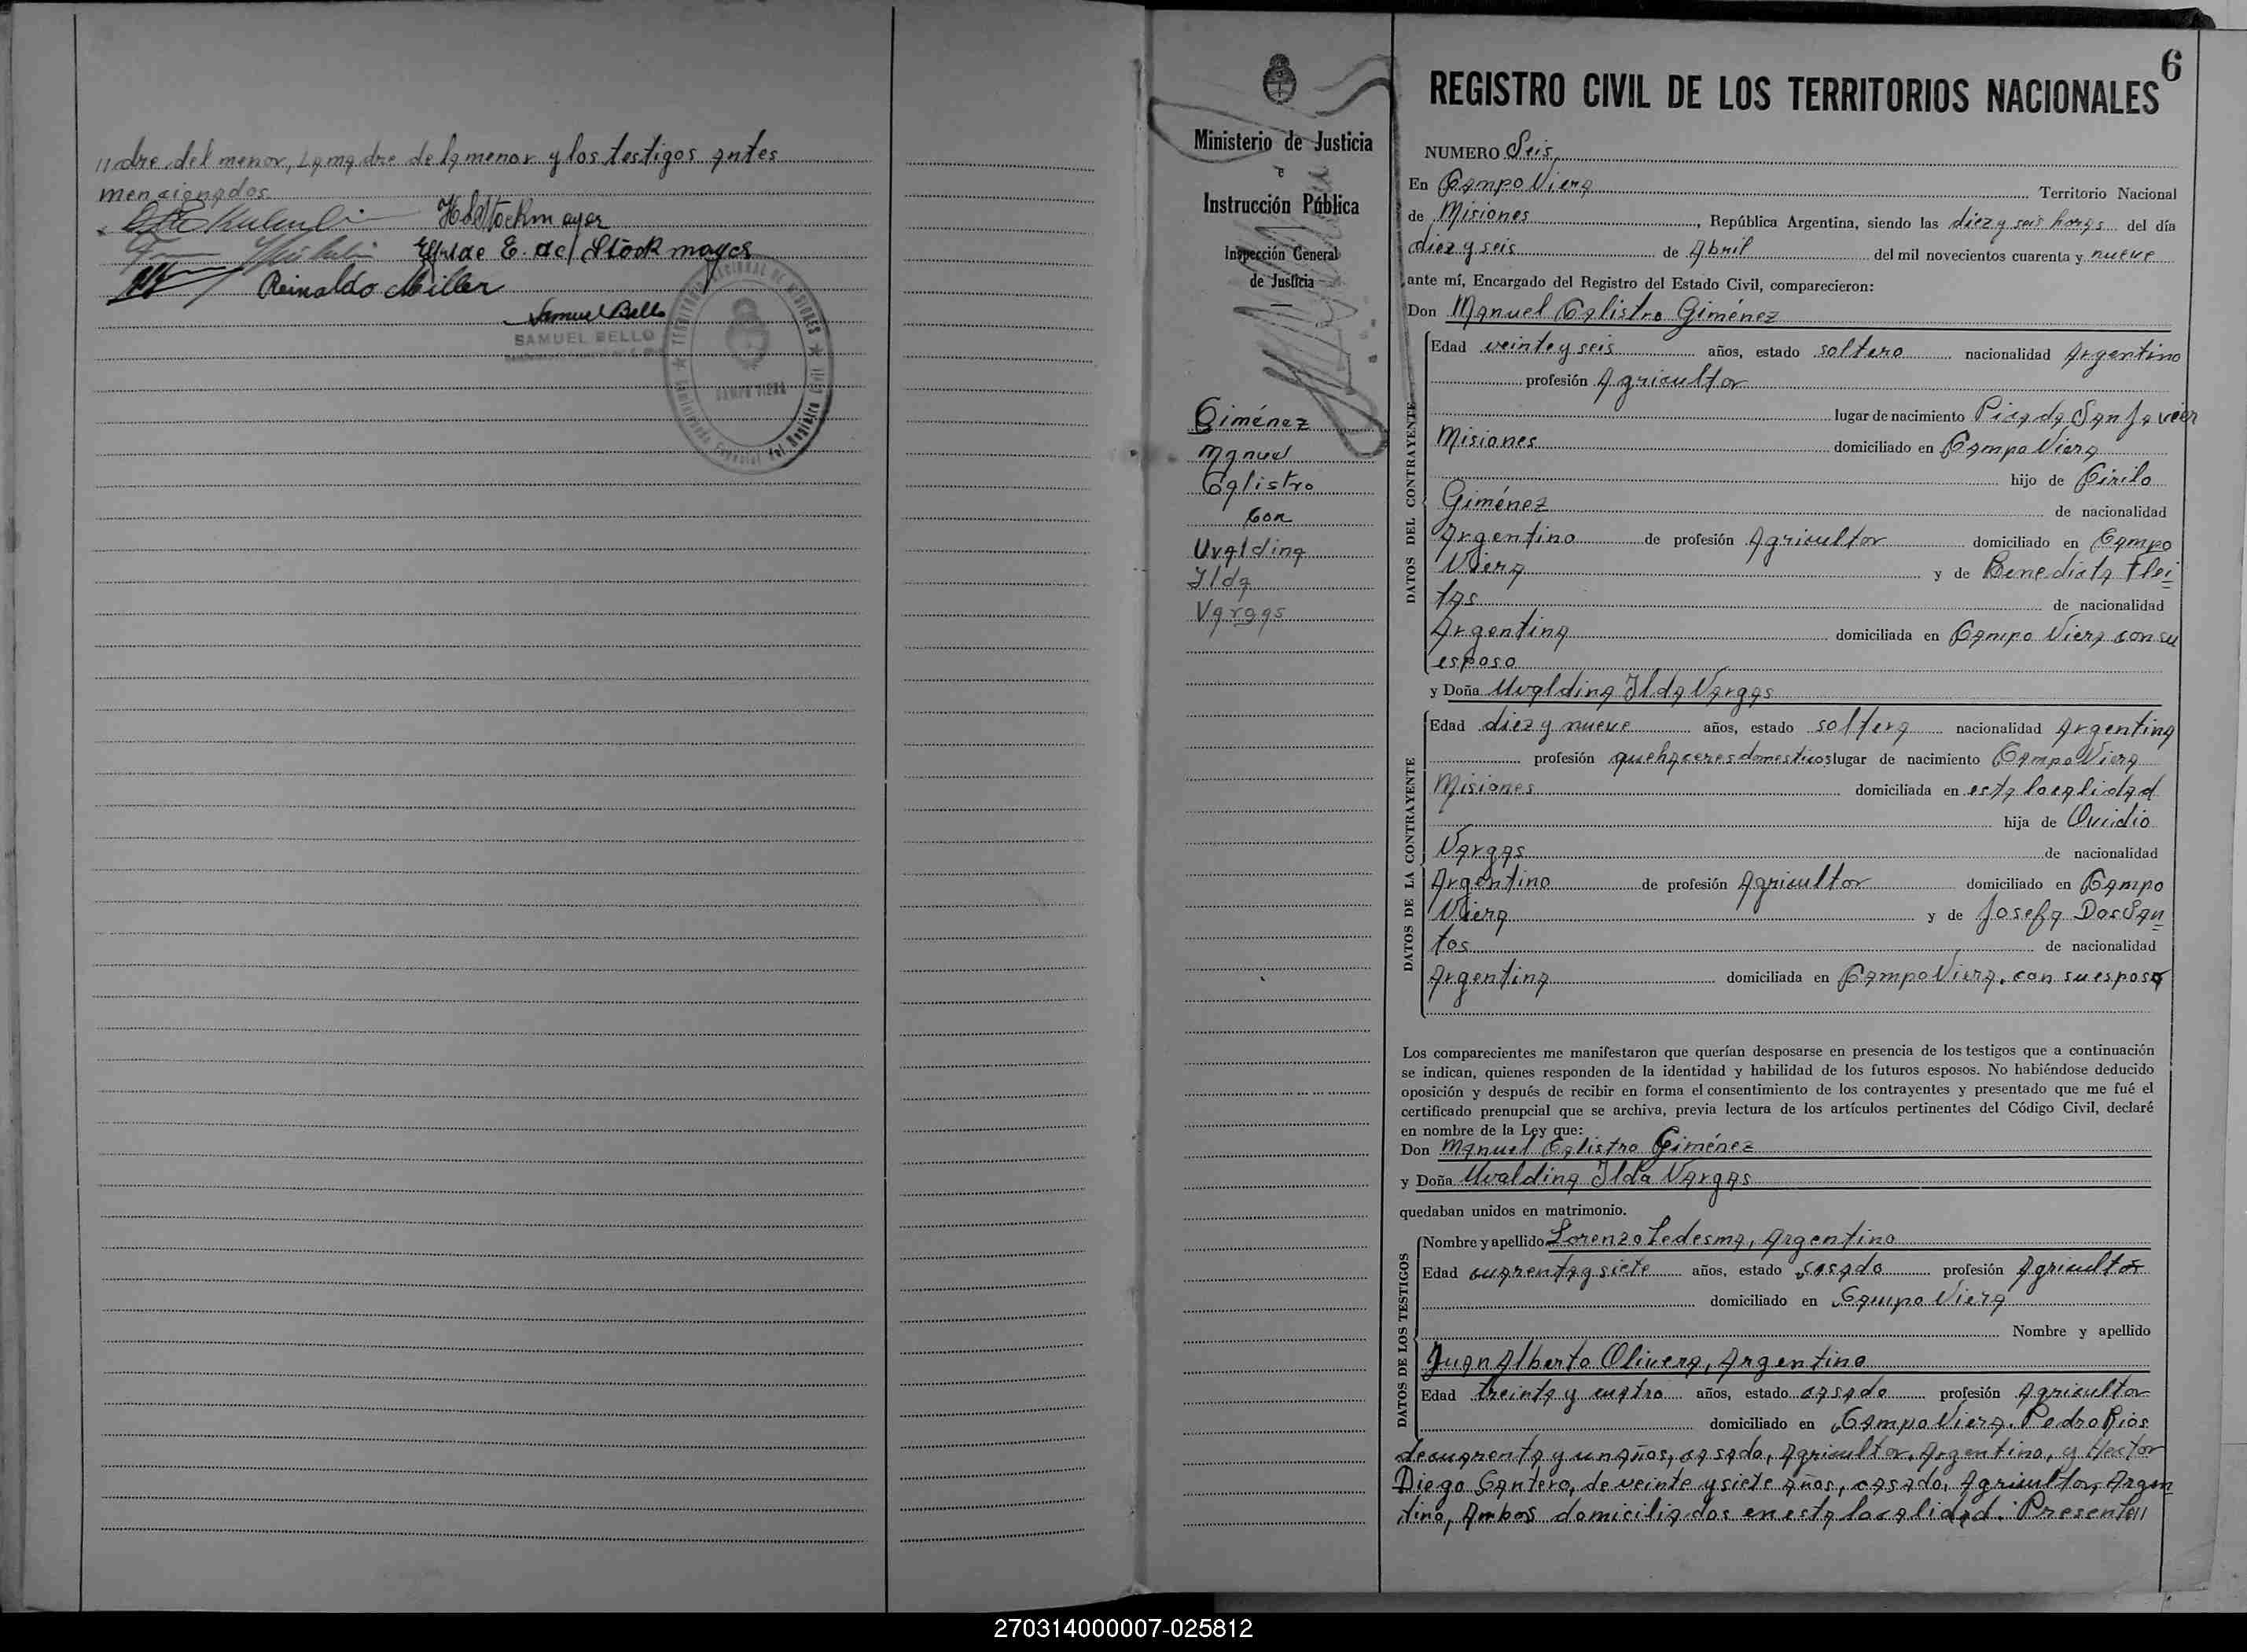 //dre del menor, La madre de la menor y los testigos antes
mencionados
H. Stockmayer
E. de Stockmayer
Reinaldo Miller
Samuel Bello
SAMUEL BELLO
CAMPO VIERA
6
REGISTRO CIVIL DE LOS TERRITORIOS NACIONALES
Ministerio de Justicia
e
Instrucción Pública
Inspección General
de Justicia
Giménez
Manuel
Calistro
Con
Uvaldina
Ilda
Vargas
NUMERO Seis
En Campo Viera Territorio Nacional
de Misiones, República Argentina, siendo las diez y seis horas del día
diez y seis de Abril del mil novecientos cuarenta y nueve
ante mí, Encargado del Registro del Estado Civil, comparecieron:
Don Manuel Calistro Giménez
DATOS DEL CONTRAYENTE
Edad veinte y seis años, estado soltero nacionalidad Argentino
profesión Agricultor
lugar de nacimiento Picada San Javier
Misiones domiciliado en Campo Viera
hijo de Cirilo
Giménez de nacionalidad
Argentino de profesión Agricultor domiciliado en Campo
Viera y de Benedicta Flei=
tas de nacionalidad
Argentina domiciliada en Campo Viera con su
esposo
y Doña Uvaldina Ilda Vargas
DATOS DE LA CONTRAYENTE
Edad diez y nueve años, estado soltera nacionalidad Argentina
profesión quehaceres domesticos lugar de nacimiento Campo Viera
Misiones domiciliada en esta localidad
hija de Ovidio
Vargas de nacionalidad
Argentino de profesión Agricultor domiciliado en Campo
Viera y de Josefa Dos San=
tos de nacionalidad
Argentina domiciliada en Campo Viera, con su esposo
Los comparecientes me manifestaron que querían desposarse en presencia de los testigos que a continuación
se indican, quienes responden de la identidad y habilidad de los futuros esposos. No habiéndose deducido
oposición y después de recibir en forma el consentimiento de los contrayentes y presentado que me fué el
certificado prenupcial que se archiva, previa lectura de los artículos pertinentes del Código Civil, declaré
en nombre de la Ley que:
Don Manuel Calistro Giménez
y Doña Uvaldina Ilda Vargas
quedaban unidos en matrimonio.
DATOS DE LOS TESTIGOS
Nombre y apellido Lorenzo Ledesma, Argentino
Edad cuarenta y siete años, estado casado profesión Agricultor
domiciliado en Campo Viera
Nombre y apellido
Juan Alberto Olivera, Argentino
Edad treinta y cuatro años, estado casado profesión Agricultor
domiciliado en Campo Viera. Pedro Rios
de cuarenta y un años, casado, Agricultor, Argentino, y Hector
Diego Cantero, de veinte y siete años, casado, Agricultor, Argen
tino, Ambos domiciliados en esta localidad. Presente//
270314000007-025812